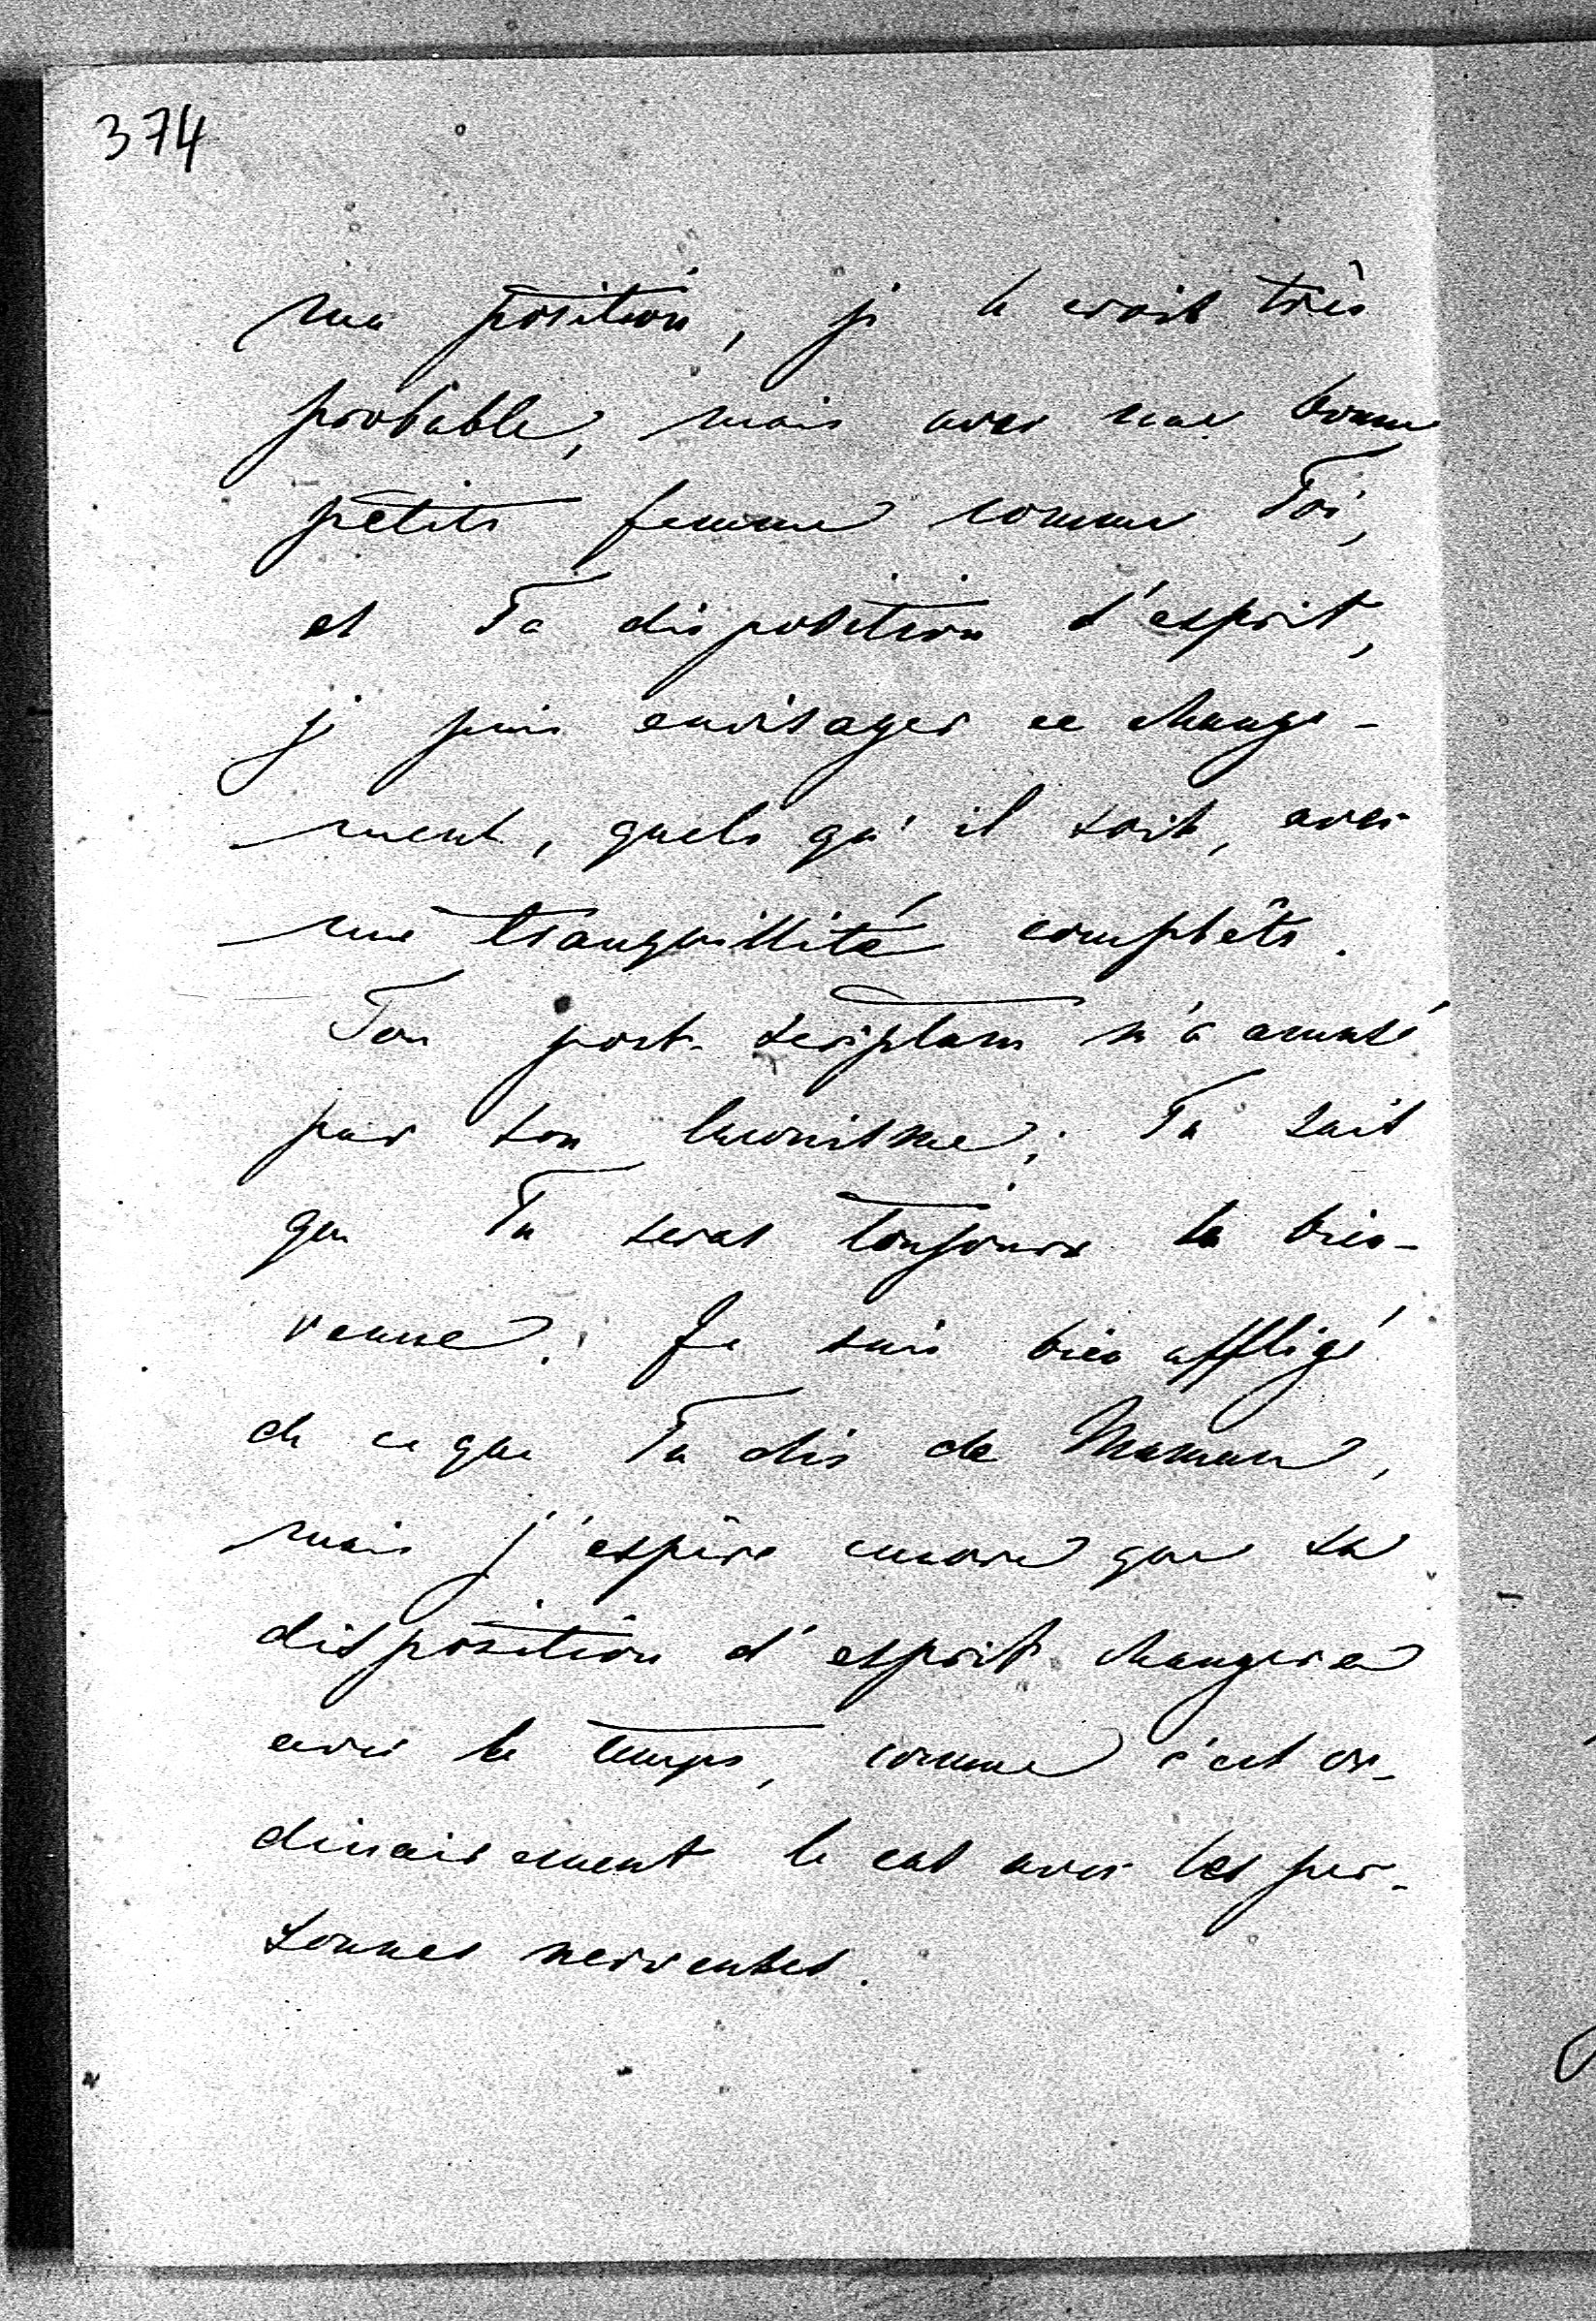 374
ma position, je le croit très
probable, mais avec une bonne
petite femme comme Toi,
et Ta disposition d'esprit,
je puis envisager ce change-
ment, quels qu'il soit, avec
une tranquillité complête.
Ton post-scriptum m'a amusé
par son laconisme; Tu sait
que Tu seras toujours la bien-
venue. Je suis bien affligé
de ce que Tu dis de Maman,
mais j'espère encore que sa
disposition d'esprit changera
avec le temps, comme c'est or-
dinairement le cas avec les per-
sonnes nerveuses.